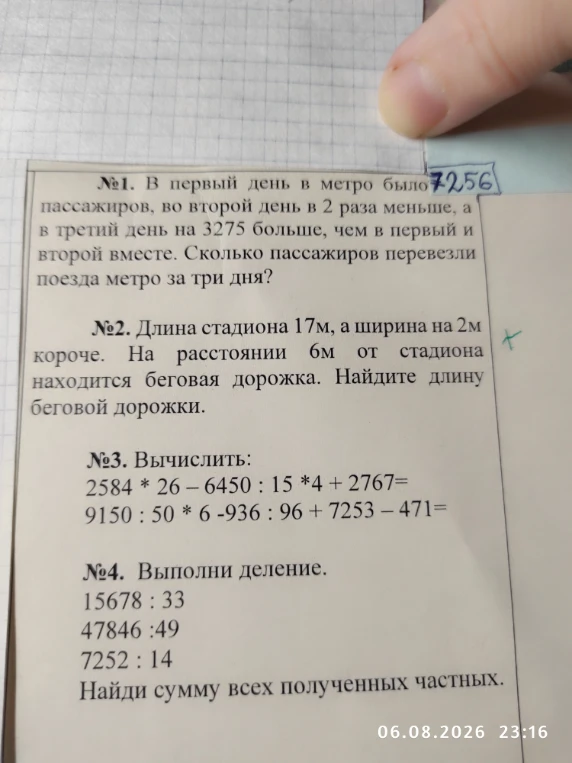 №1. В первый день в метро было 7256
пассажиров, во второй день в 2 раза меньше, а
в третий день на 3275 больше, чем в первый и
второй вместе. Сколько пассажиров перевезли
поезда метро за три дня?
№2. Длина стадиона 17м, а ширина на 2м
короче. На расстоянии 6м от стадиона
находится беговая дорожка. Найдите длину
беговой дорожки.
№3. Вычислить:
2584 * 26 – 6450 : 15 *4 + 2767=
9150 : 50 * 6 -936 : 96 + 7253 – 471=
№4. Выполни деление.
15678 : 33
47846 :49
7252 : 14
Найди сумму всех полученных частных.
06.08.2026 23:16